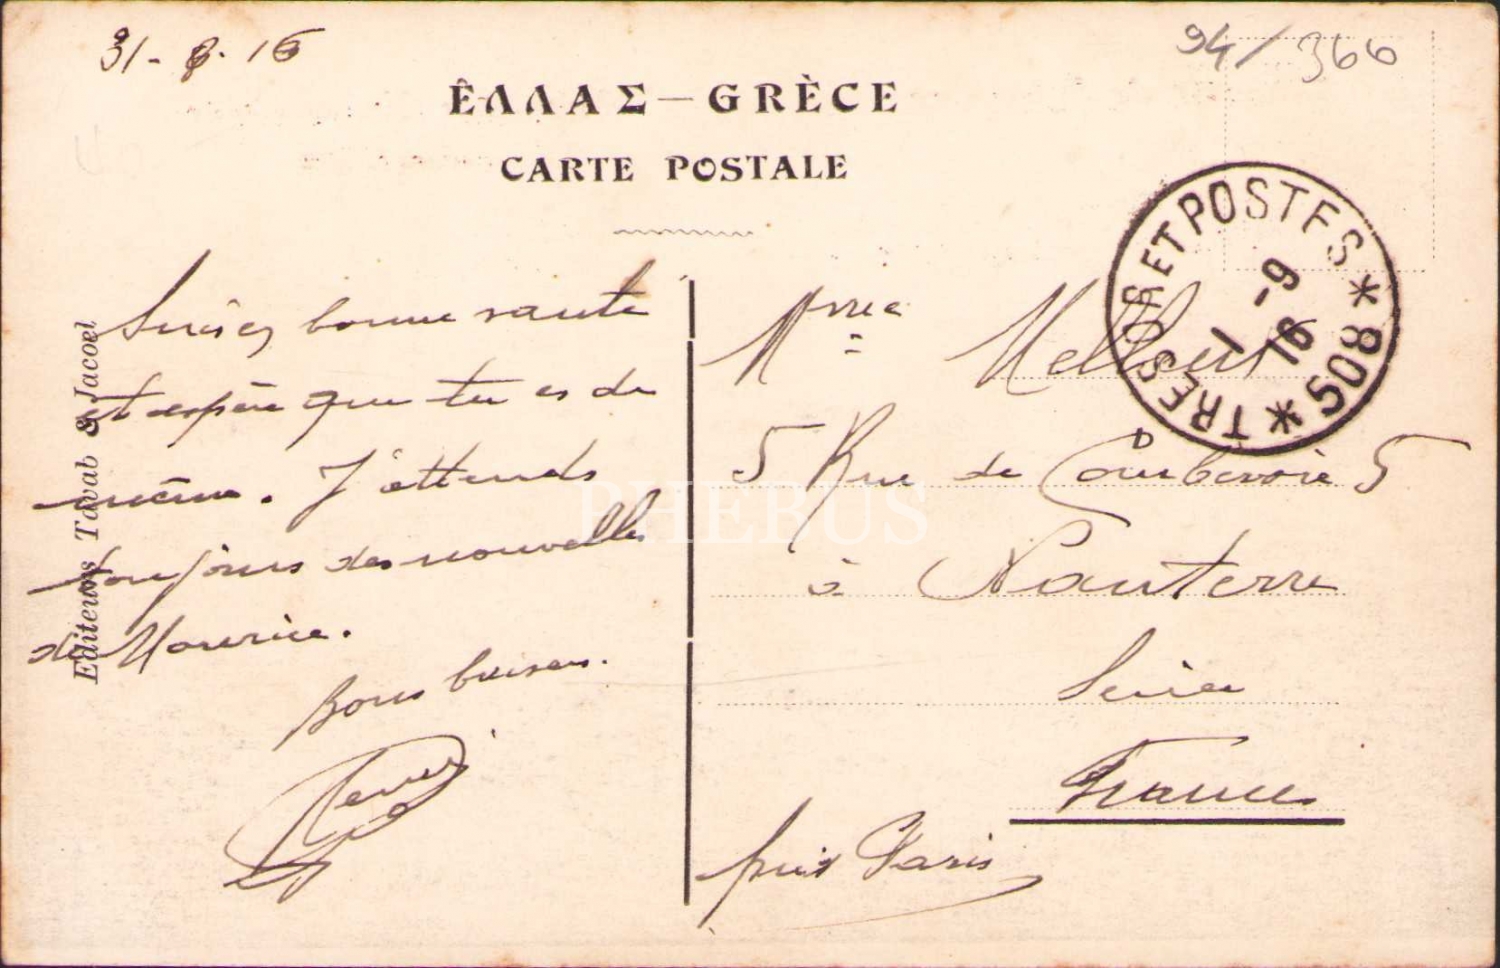 31-8-16
94/366
ΈΛΛΑΣ — GRÈCE
CARTE POSTALE
Editeurs Tavab & Jacoel
TRESOR ET POSTES * 508 *
1 -9
16
bonne santé
et espère que tu es de
même. J'attends
toujours des nouvelles
de Maurice.
Bons baisers.
Mme
5 Rue de Courbevoie 5
à Nanterre
Seine
France
près Paris
PHEBUS